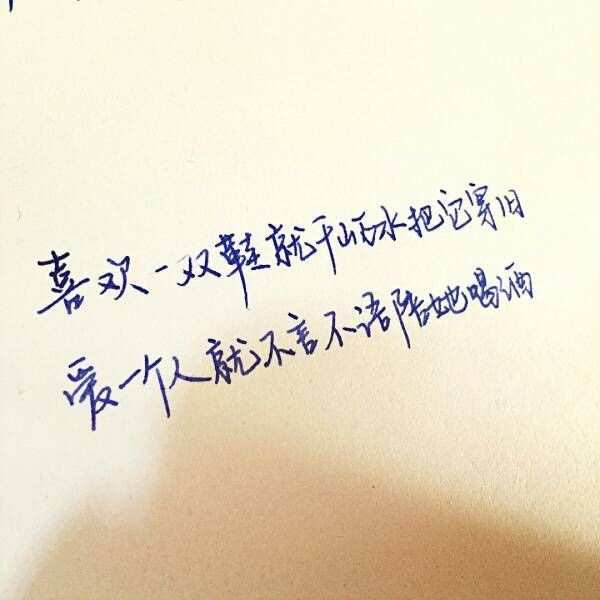 喜欢一双鞋就千山万水把它穿旧
爱一个人就不言不语陪她喝酒